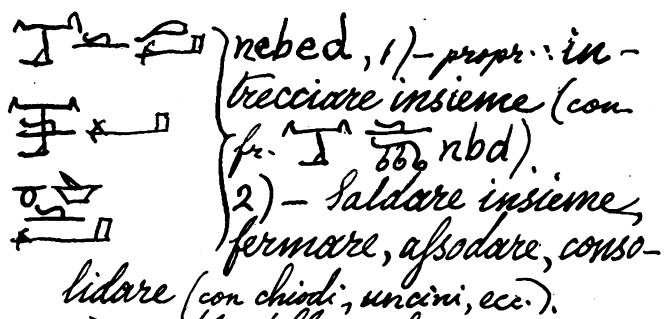 nebed, 1) – propr.: in-
trecciare insieme (con-
fr. nbd)
2) – Saldare insieme,
fermare, assodare, conso-
lidare (con chiodi, uncini, ecc.).